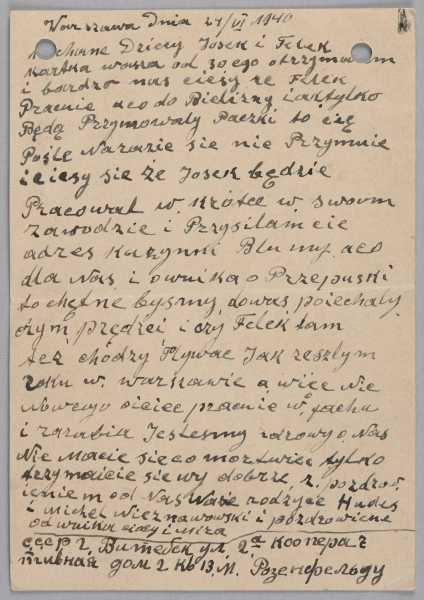 Warszawa Dnia 24/VI 1940
Kochane Dziecy Josek i Felek
Kartka wasza od 30ego otrzymałem
i bardzo nas ciesy ze Felek
Pracuie aco do Bielizny i
Będą Przyjmowaly Paczki to cię
Poślę Narazie sie nie Przyjmuie
i ciesy sie że Josek będzie
Pracował w krótce w swoim
zawodzie i Przysiłam cie
adres kuzynki Blumy aco
dla Nas i ownika o Przepuski
to chętne bysmy dowas poiechaly
czym prędzei i czy Felek tam
też chodzy Plywac Jak zeszlym
roku w. warszawie a więc Nie
Nowego oiciec pracuie w fachu
i zarabia Jestesmy zdrowy o Nas
Nie Macie sie co martwic tylko
trzymaicie sie wy dobrze, z. pozdrow
ieniem od Nas Wasie rodzyce Hudes
i Michel Nieznawowski i pozdrowiene
od wuika
СССР г. Витебск ул. 2а коопера=
тивная дом 2 кв 13. М. Розенфельду